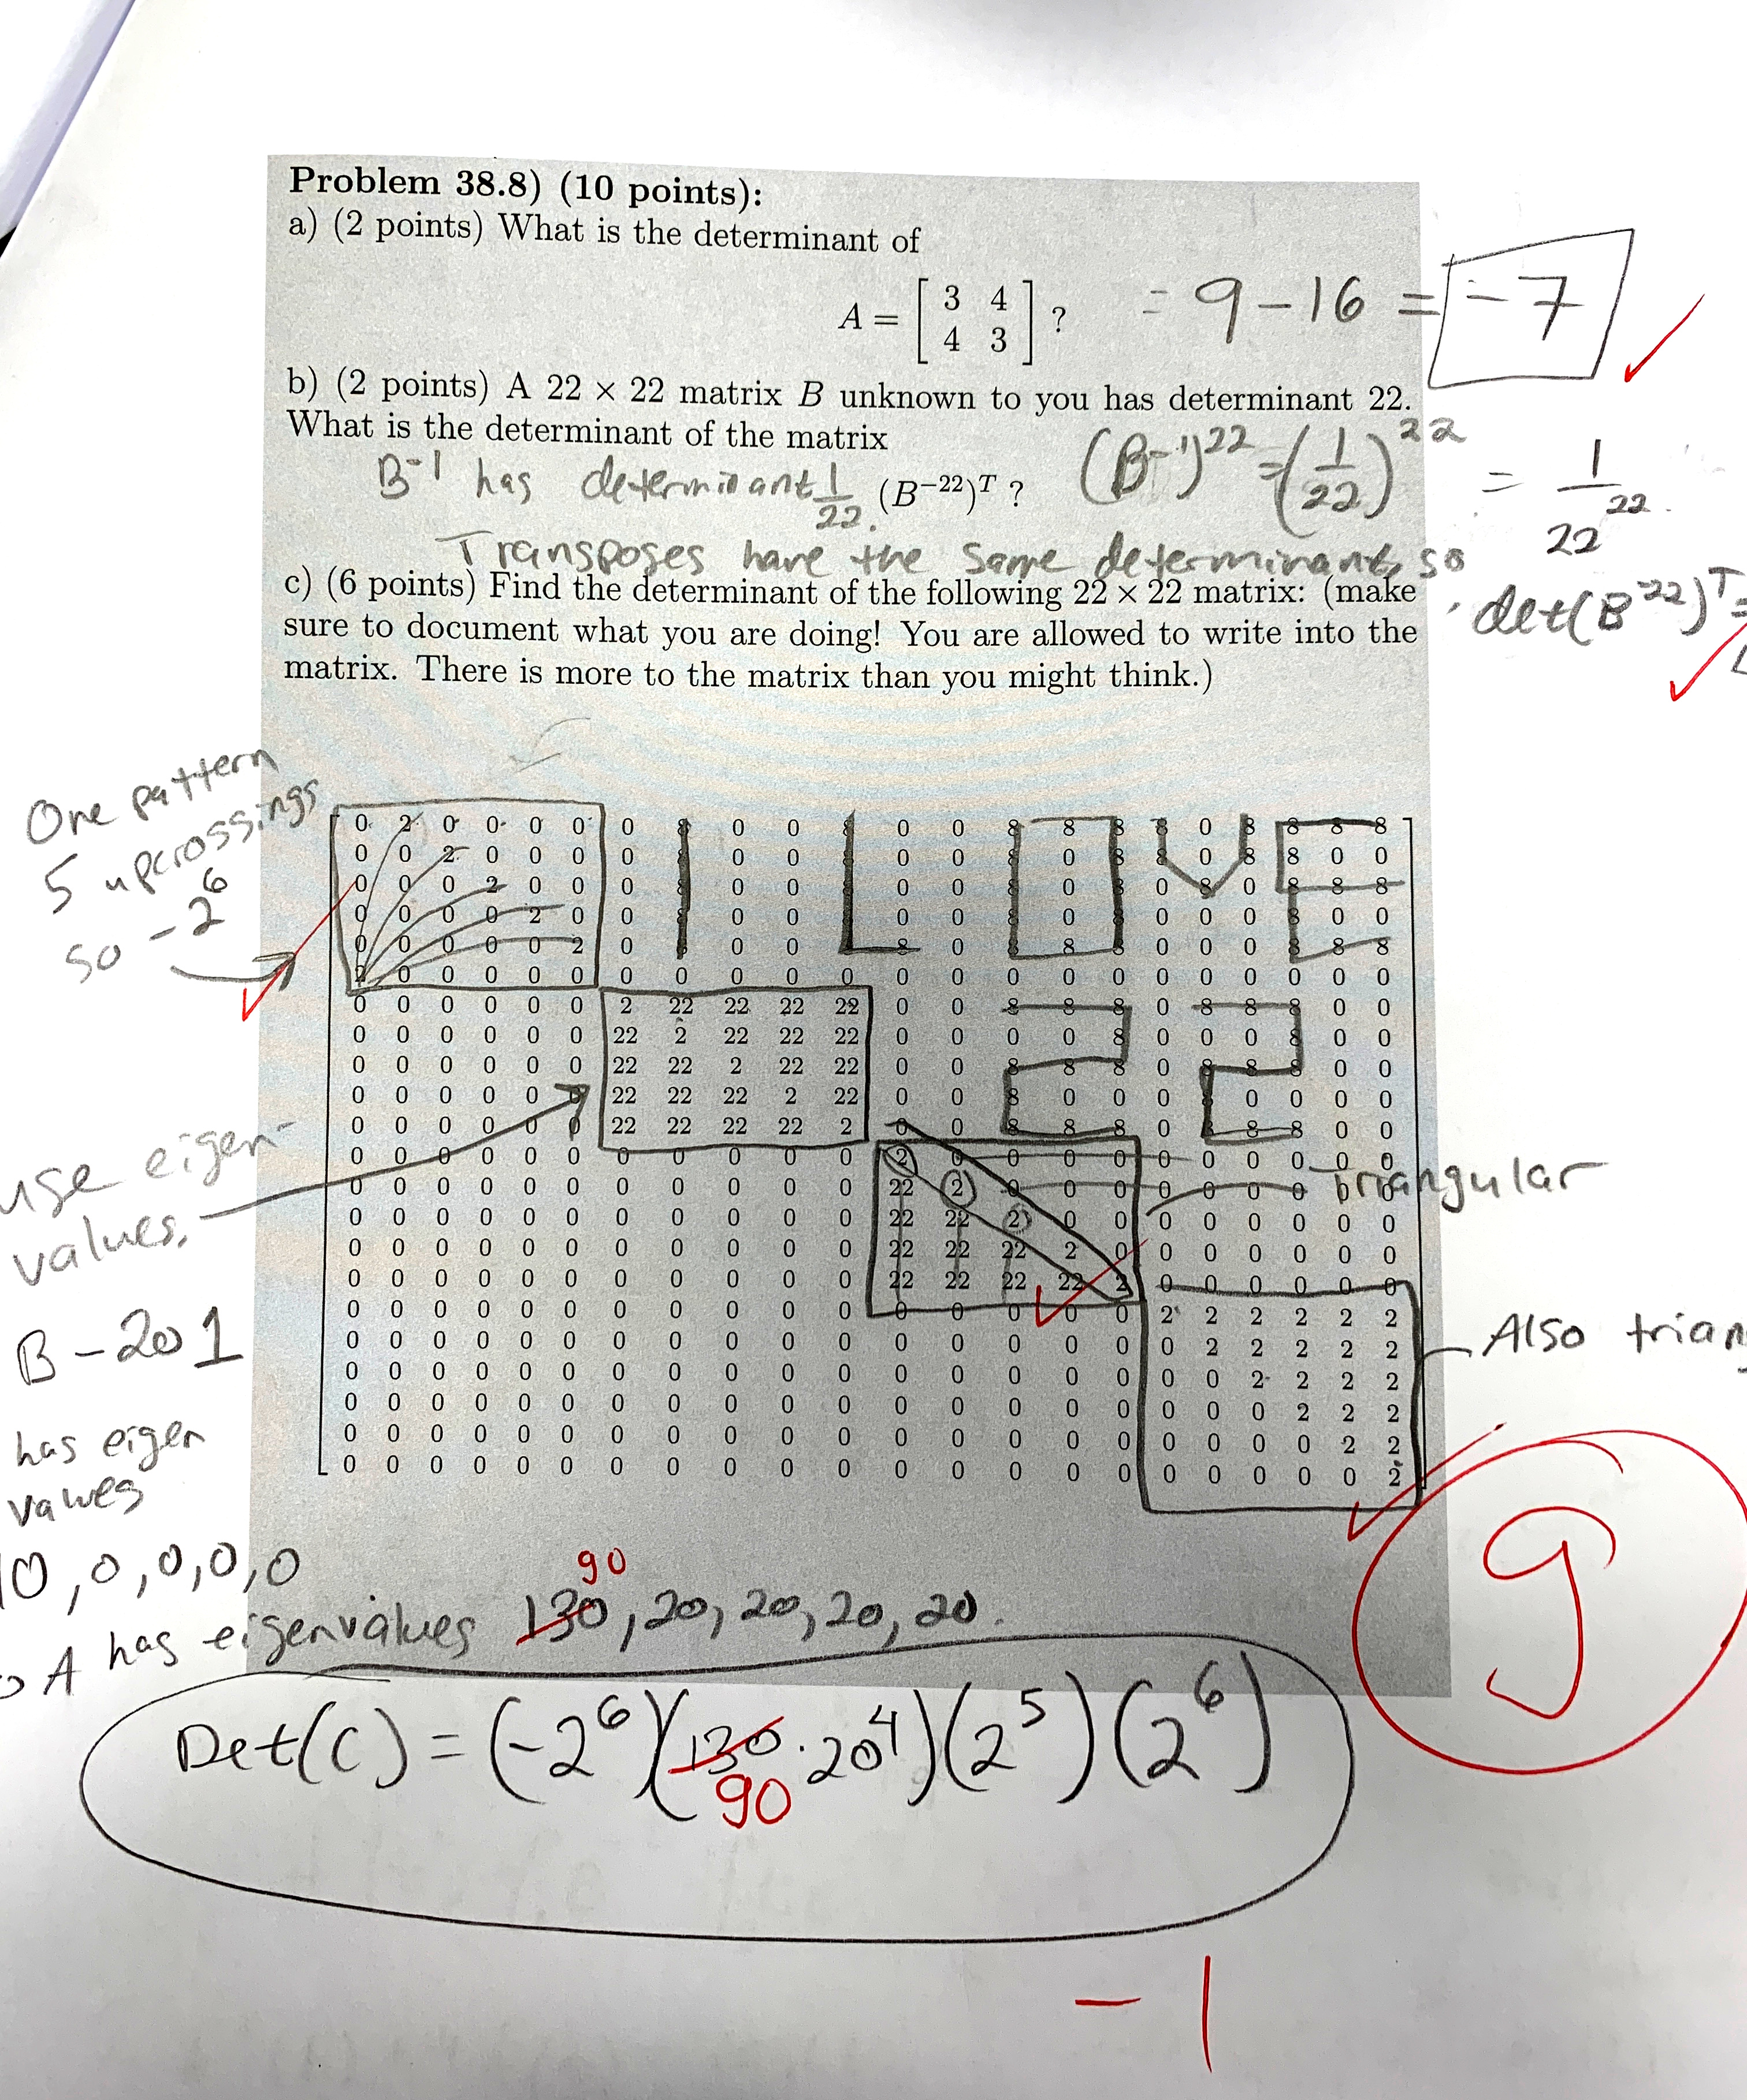 Problem 38.8) (10 points):
a) (2 points) What is the determinant of
A = [ 3 4
4 3 ] ? = 9 - 16 = -7
b) (2 points) A 22 × 22 matrix B unknown to you has determinant 22.
What is the determinant of the matrix
B^-1 has determinant 1/22. (B^−22)^T ? (B^-1)^22 = (1/22)^22 = 1/22^22.
Transposes have the same determinant, so
det(B^-22)^T =
c) (6 points) Find the determinant of the following 22 × 22 matrix: (make
sure to document what you are doing! You are allowed to write into the
matrix. There is more to the matrix than you might think.)
One pattern
5 upcrossings
so -2^6
0 2 0 0 0 0 0 8 0 0 8 0 0 8 8 8 8 0 8 8 8 8
0 0 2 0 0 0 0 8 0 0 8 0 0 8 0 8 8 0 8 8 0 0
0 0 0 2 0 0 0 8 0 0 8 0 0 8 0 8 0 8 0 8 8 8
0 0 0 0 2 0 0 8 0 0 8 0 0 8 0 8 0 0 0 8 0 0
0 0 0 0 0 2 0 8 0 0 8 8 0 8 8 8 0 0 0 8 8 8
2 0 0 0 0 0 0 0 0 0 0 0 0 0 0 0 0 0 0 0 0 0
0 0 0 0 0 0 2 22 22 22 22 0 0 8 8 8 0 8 8 8 0 0
0 0 0 0 0 0 22 2 22 22 22 0 0 0 0 8 0 0 0 8 0 0
0 0 0 0 0 0 22 22 2 22 22 0 0 8 8 8 0 8 8 8 0 0
0 0 0 0 0 0 22 22 22 2 22 0 0 8 0 0 0 8 0 0 0 0
0 0 0 0 0 0 22 22 22 22 2 0 0 8 8 8 0 8 8 8 0 0
0 0 0 0 0 0 0 0 0 0 0 2 0 0 0 0 0 0 0 0 0 0
0 0 0 0 0 0 0 0 0 0 0 22 2 0 0 0 0 0 0 0 0 0
0 0 0 0 0 0 0 0 0 0 0 22 22 2 0 0 0 0 0 0 0 0
0 0 0 0 0 0 0 0 0 0 0 22 22 22 2 0 0 0 0 0 0 0
0 0 0 0 0 0 0 0 0 0 0 22 22 22 22 2 0 0 0 0 0 0
0 0 0 0 0 0 0 0 0 0 0 0 0 0 0 0 2 2 2 2 2 2
0 0 0 0 0 0 0 0 0 0 0 0 0 0 0 0 0 2 2 2 2 2
0 0 0 0 0 0 0 0 0 0 0 0 0 0 0 0 0 0 2 2 2 2
0 0 0 0 0 0 0 0 0 0 0 0 0 0 0 0 0 0 0 2 2 2
0 0 0 0 0 0 0 0 0 0 0 0 0 0 0 0 0 0 0 0 2 2
0 0 0 0 0 0 0 0 0 0 0 0 0 0 0 0 0 0 0 0 0 2
triangular
Also trian
use eigen-
values.
B - 201
has eigen
values
10, 0, 0, 0, 0
90
A has eigenvalues 130, 20, 20, 20, 20.
Det(C) = (-2^6)(130 · 20^4)(2^5)(2^6)
90
9
-1